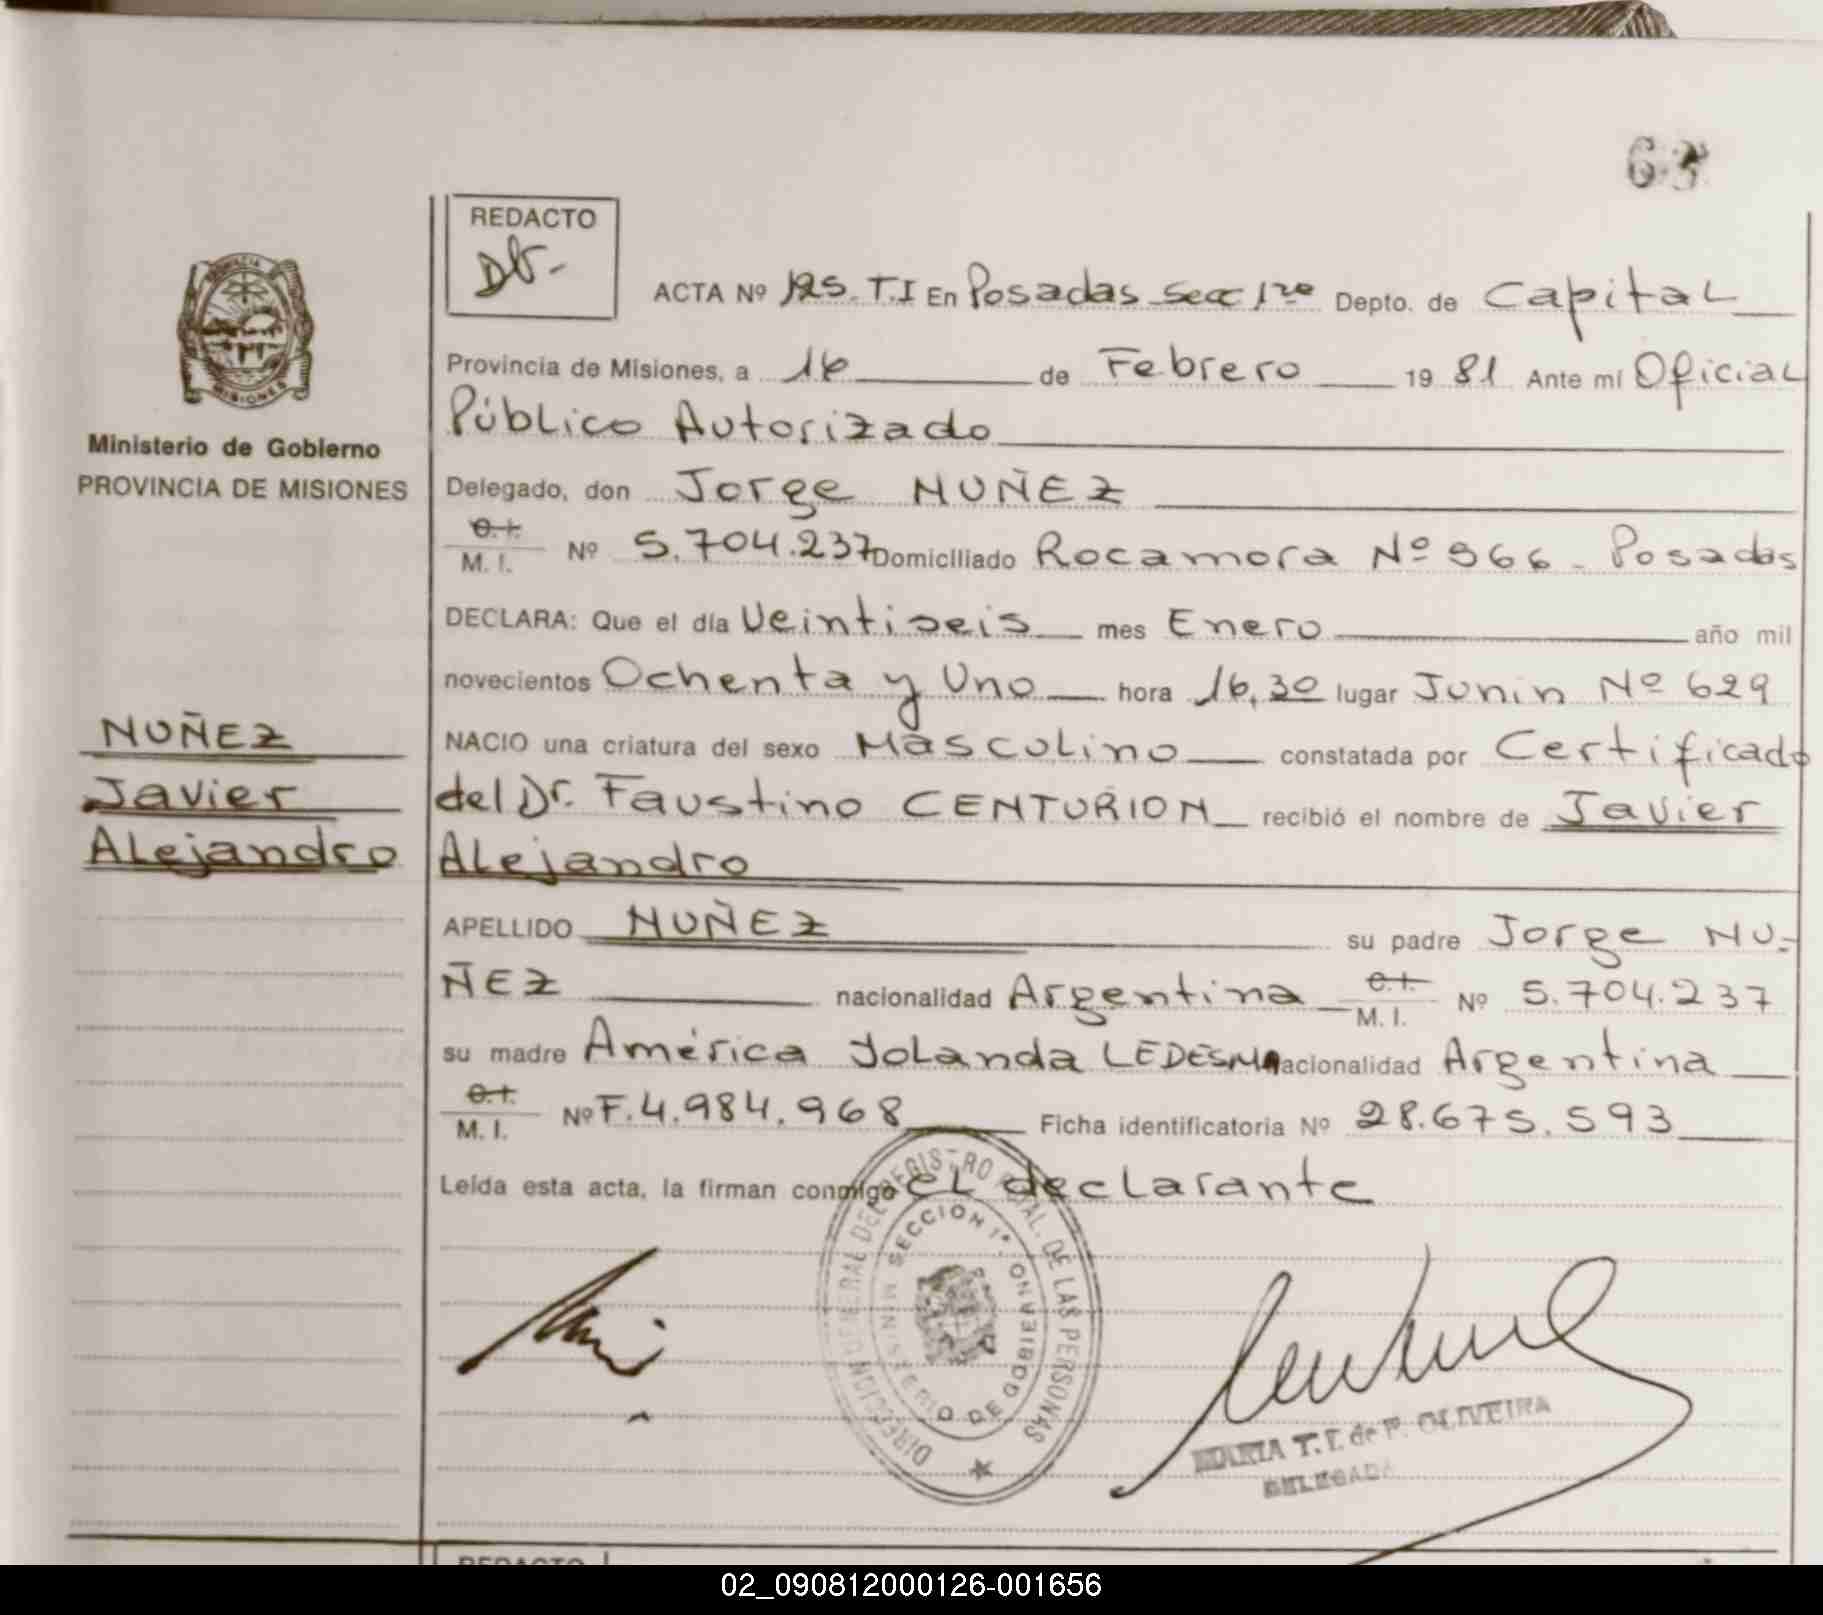 63
REDACTO
ACTA Nº 125. T.I En Posadas Secc 1ra Depto. de Capital
Provincia de Misiones, a 16 de Febrero 19 81 Ante mí Oficial
Público Autorizado
Ministerio de Gobierno
PROVINCIA DE MISIONES
Delegado, don Jorge NUÑEZ
C.I.
M. I. Nº 5.704.237 Domiciliado Rocamora Nº 966 - Posadas
DECLARA: Que el día Veintiseis mes Enero año mil
novecientos Ochenta y Uno hora 16,30 lugar Junin Nº 629
NUÑEZ
Javier
Alejandro
NACIO una criatura del sexo Masculino constatada por Certificado
del Dr. Faustino CENTURION recibió el nombre de Javier
Alejandro
APELLIDO NUÑEZ su padre Jorge NU-
ÑEZ nacionalidad Argentina C.I. M. I. Nº 5.704.237
su madre América Yolanda LEDESMA nacionalidad Argentina
C.I.
M. I. Nº F.4.984.968 Ficha identificatoria Nº 28.675.593
Leída esta acta, la firman conmigo el declarante
DIRECCION GENERAL DEL REGISTRO PCIAL. DE LAS PERSONAS
SECCION 1ª
MINISTERIO DE GOBIERNO
MARIA T. I. de F. OLIVEIRA
DELEGADA
REDACTO
02_090812000126-001656